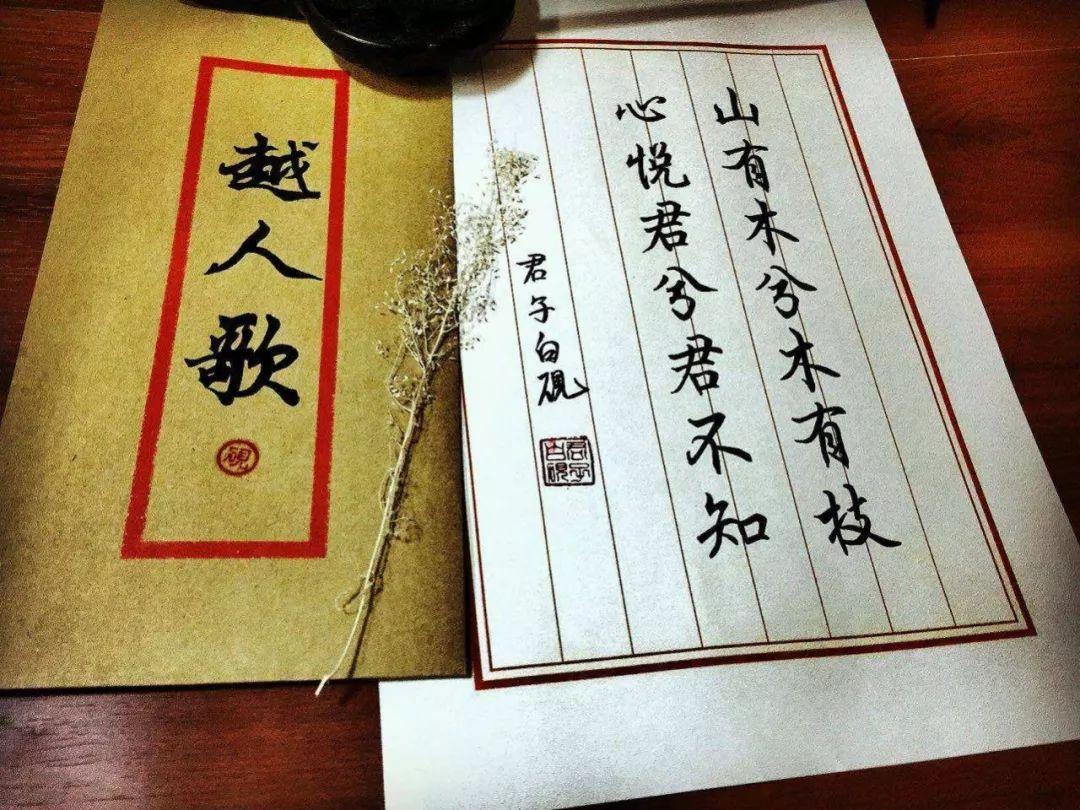 越人歌
砚
山有木兮木有枝
心悦君兮君不知
君子白砚
君子白砚